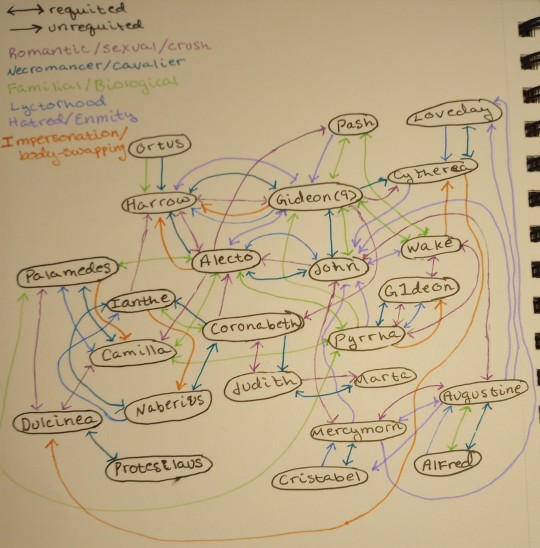 requited
unrequited
Romantic/sexual/crush
Necromancer/Cavalier
Familial/Biological
Lyctorhood
Hatred/Enmity
Impersonation/
body-swapping
Ortus
Pash
Loveday
Cytherea
Harrow
Gideon(9)
Wake
Alecto
John
Palamedes
G1deon
Ianthe
Coronabeth
Pyrrha
Camilla
Judith
Marta
Naberius
Augustine
Dulcinea
Mercymorn
Protesilaus
Cristabel
Alfred